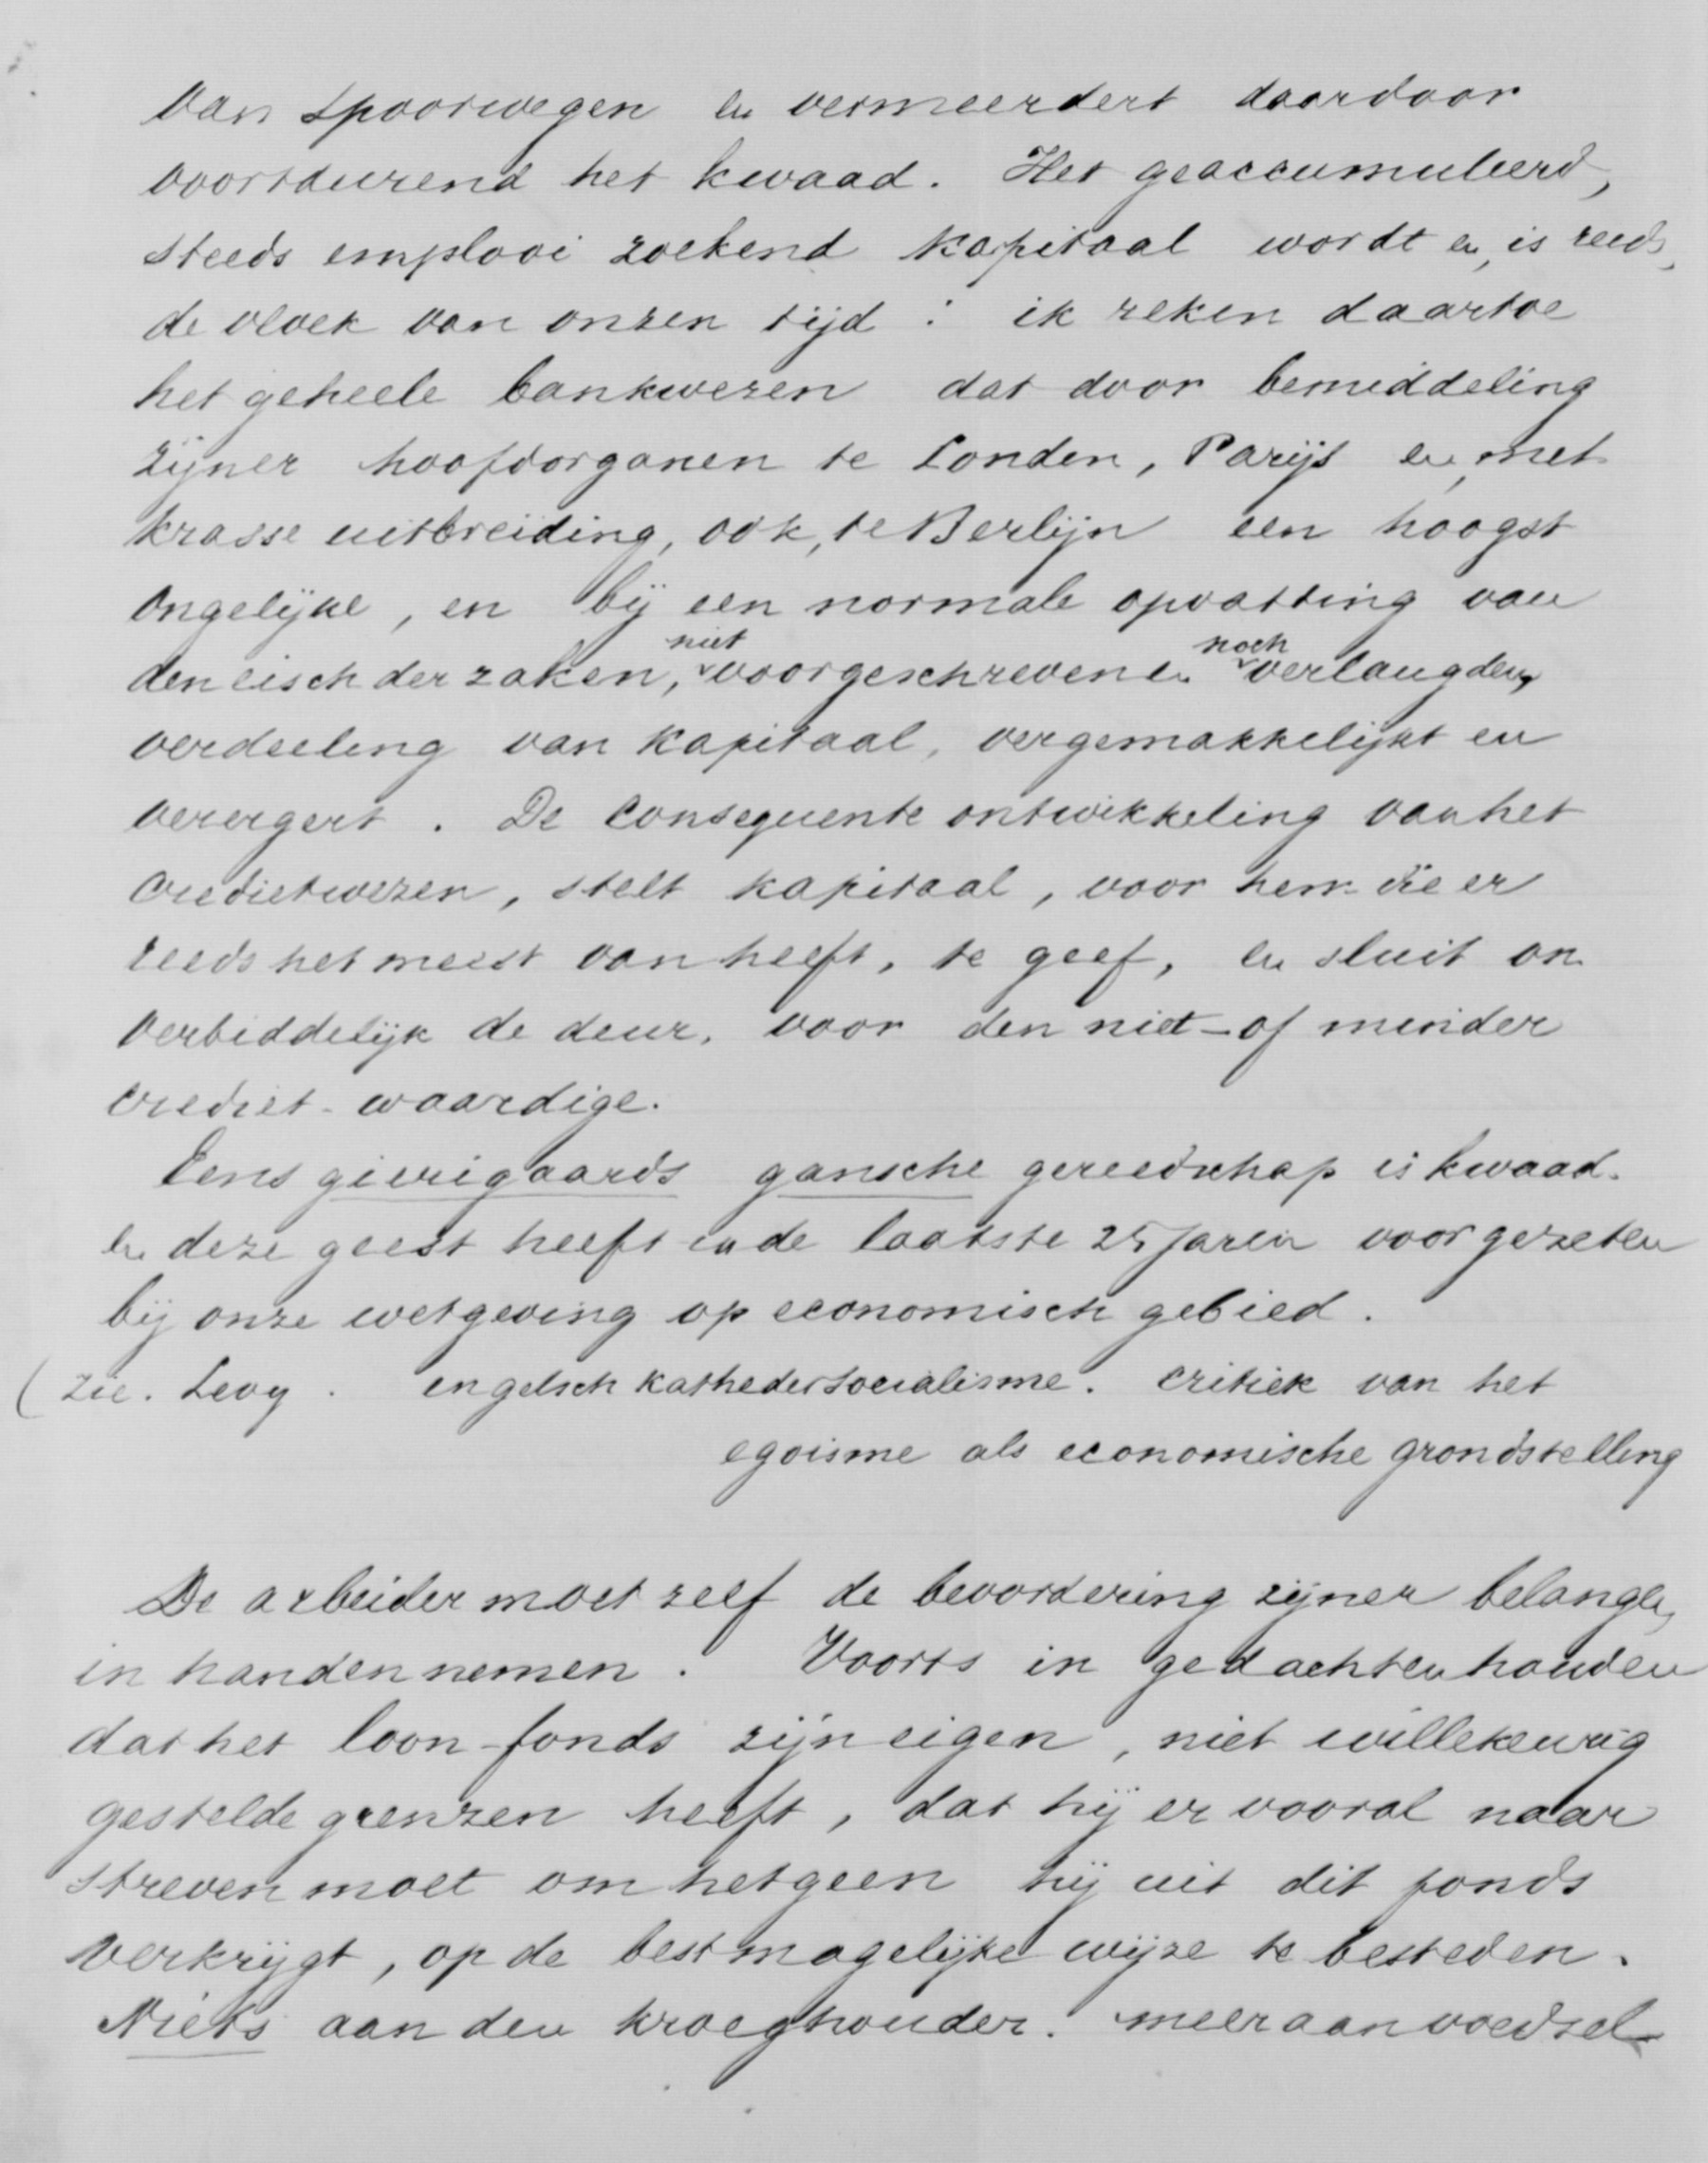 van spoorwegen en vermeerdert daardoor
voortdurend het kwaad. Het geaccumuleerd,
steeds emplooi zoekend kapitaal wordt en, is reeds,
de vloek van onzen tijd : ik reken daartoe
het geheele bankwezen dat door bemiddeling
zijner hoofdorganen te Londen, Parijs en, met
krasse uitbreiding, ook, te Berlijn een hoogst
ongelijke, en bij een normale opvatting van
den eisch der zaken, niet voorgeschreven en noch verlangden,
verdeeling van kapitaal, vergemakkelijkt en
verergert. De consequente ontwikkeling van het
credietwezen, stelt kapitaal, voor hem die er
reeds het meest van heeft, te geef, en sluit on
verbiddelijk de deur, voor den niet- of minder
crediet-waardige.
Eens gierigaards gansche gereedschap is kwaad.
En deze geest heeft in de laatste 25 jaren voorgezeten
bij onze wetgeving op economisch gebied.
(zie. Levy. engelsch kathedersocialisme. critiek van het
egoisme als economische grondstelling
De arbeider moet zelf de bevordering zijner belangen
in handen nemen. Voorts in gedachten houden
dat het loon-fonds zijn eigen, niet willekeurig
gestelde grenzen heeft, dat hij er vooral naar
streven moet om hetgeen hij uit dit fonds
verkrijgt, op de best mogelijke wijze te besteden.
Niets aan den kroeghouder. meer aan voedsel